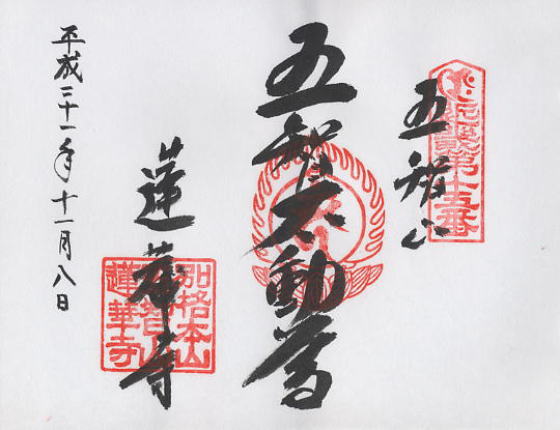 第十五番
五智山
五智不動尊
蓮華寺
別格本山
五智山
蓮華寺
平成二十一年十一月八日